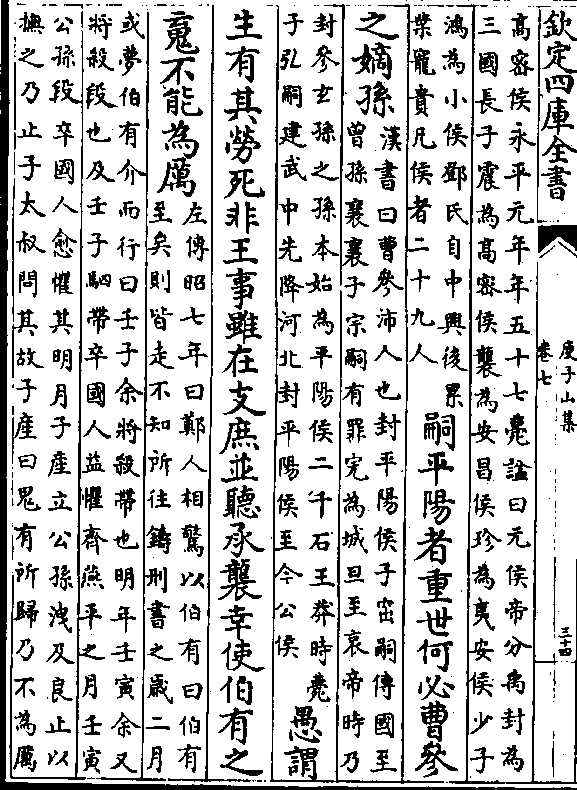 欽定四庫全書
庾子山集
卷七
三十四
高密侯永平元年年五十七薨諡曰元侯帝分禹封為
三國長子震為高密侯襲為安昌侯珍為夷安侯少子
鴻為小侯鄧氏自中興後累
榮寵貴凡侯者二十九人
嗣平陽者重世何必曹參
之嫡孫
漢書曰曹參沛人也封平陽侯子窋嗣傳國至
曾孫襄襄子宗嗣有罪完為城旦至哀帝時乃
封參玄孫之孫本始為平陽侯二千石王莽時薨
子弘嗣建武中先降河北封平陽侯至今公侯
愚謂
生有其勞死非王事雖在支庶並聽承襲幸使伯有之
䰟不能為厲
左傳昭七年曰鄭人相驚以伯有曰伯有
至矣則皆走不知所往鑄刑書之歲二月
或夢伯有介而行曰壬子余將殺帶也明年壬寅余又
將殺段也及壬子駟帶卒國人益懼齊燕平之月壬寅
公孫段卒國人愈懼其明月子產立公孫洩及良止以
撫之乃止子太叔問其故子產曰鬼有所歸乃不為厲